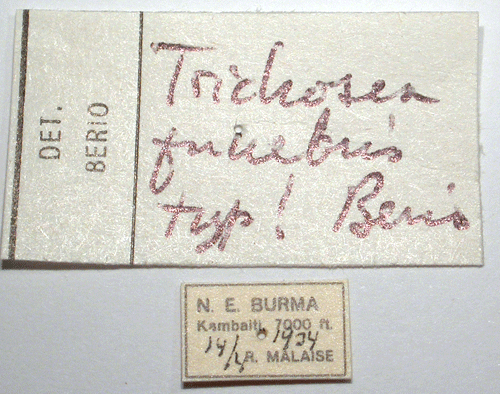 DET.
BERIO
Trichosea
funebris
typ! Berio
N. E. BURMA
Kambaiti, 7000 ft.
14/4 1934
R. MALAISE